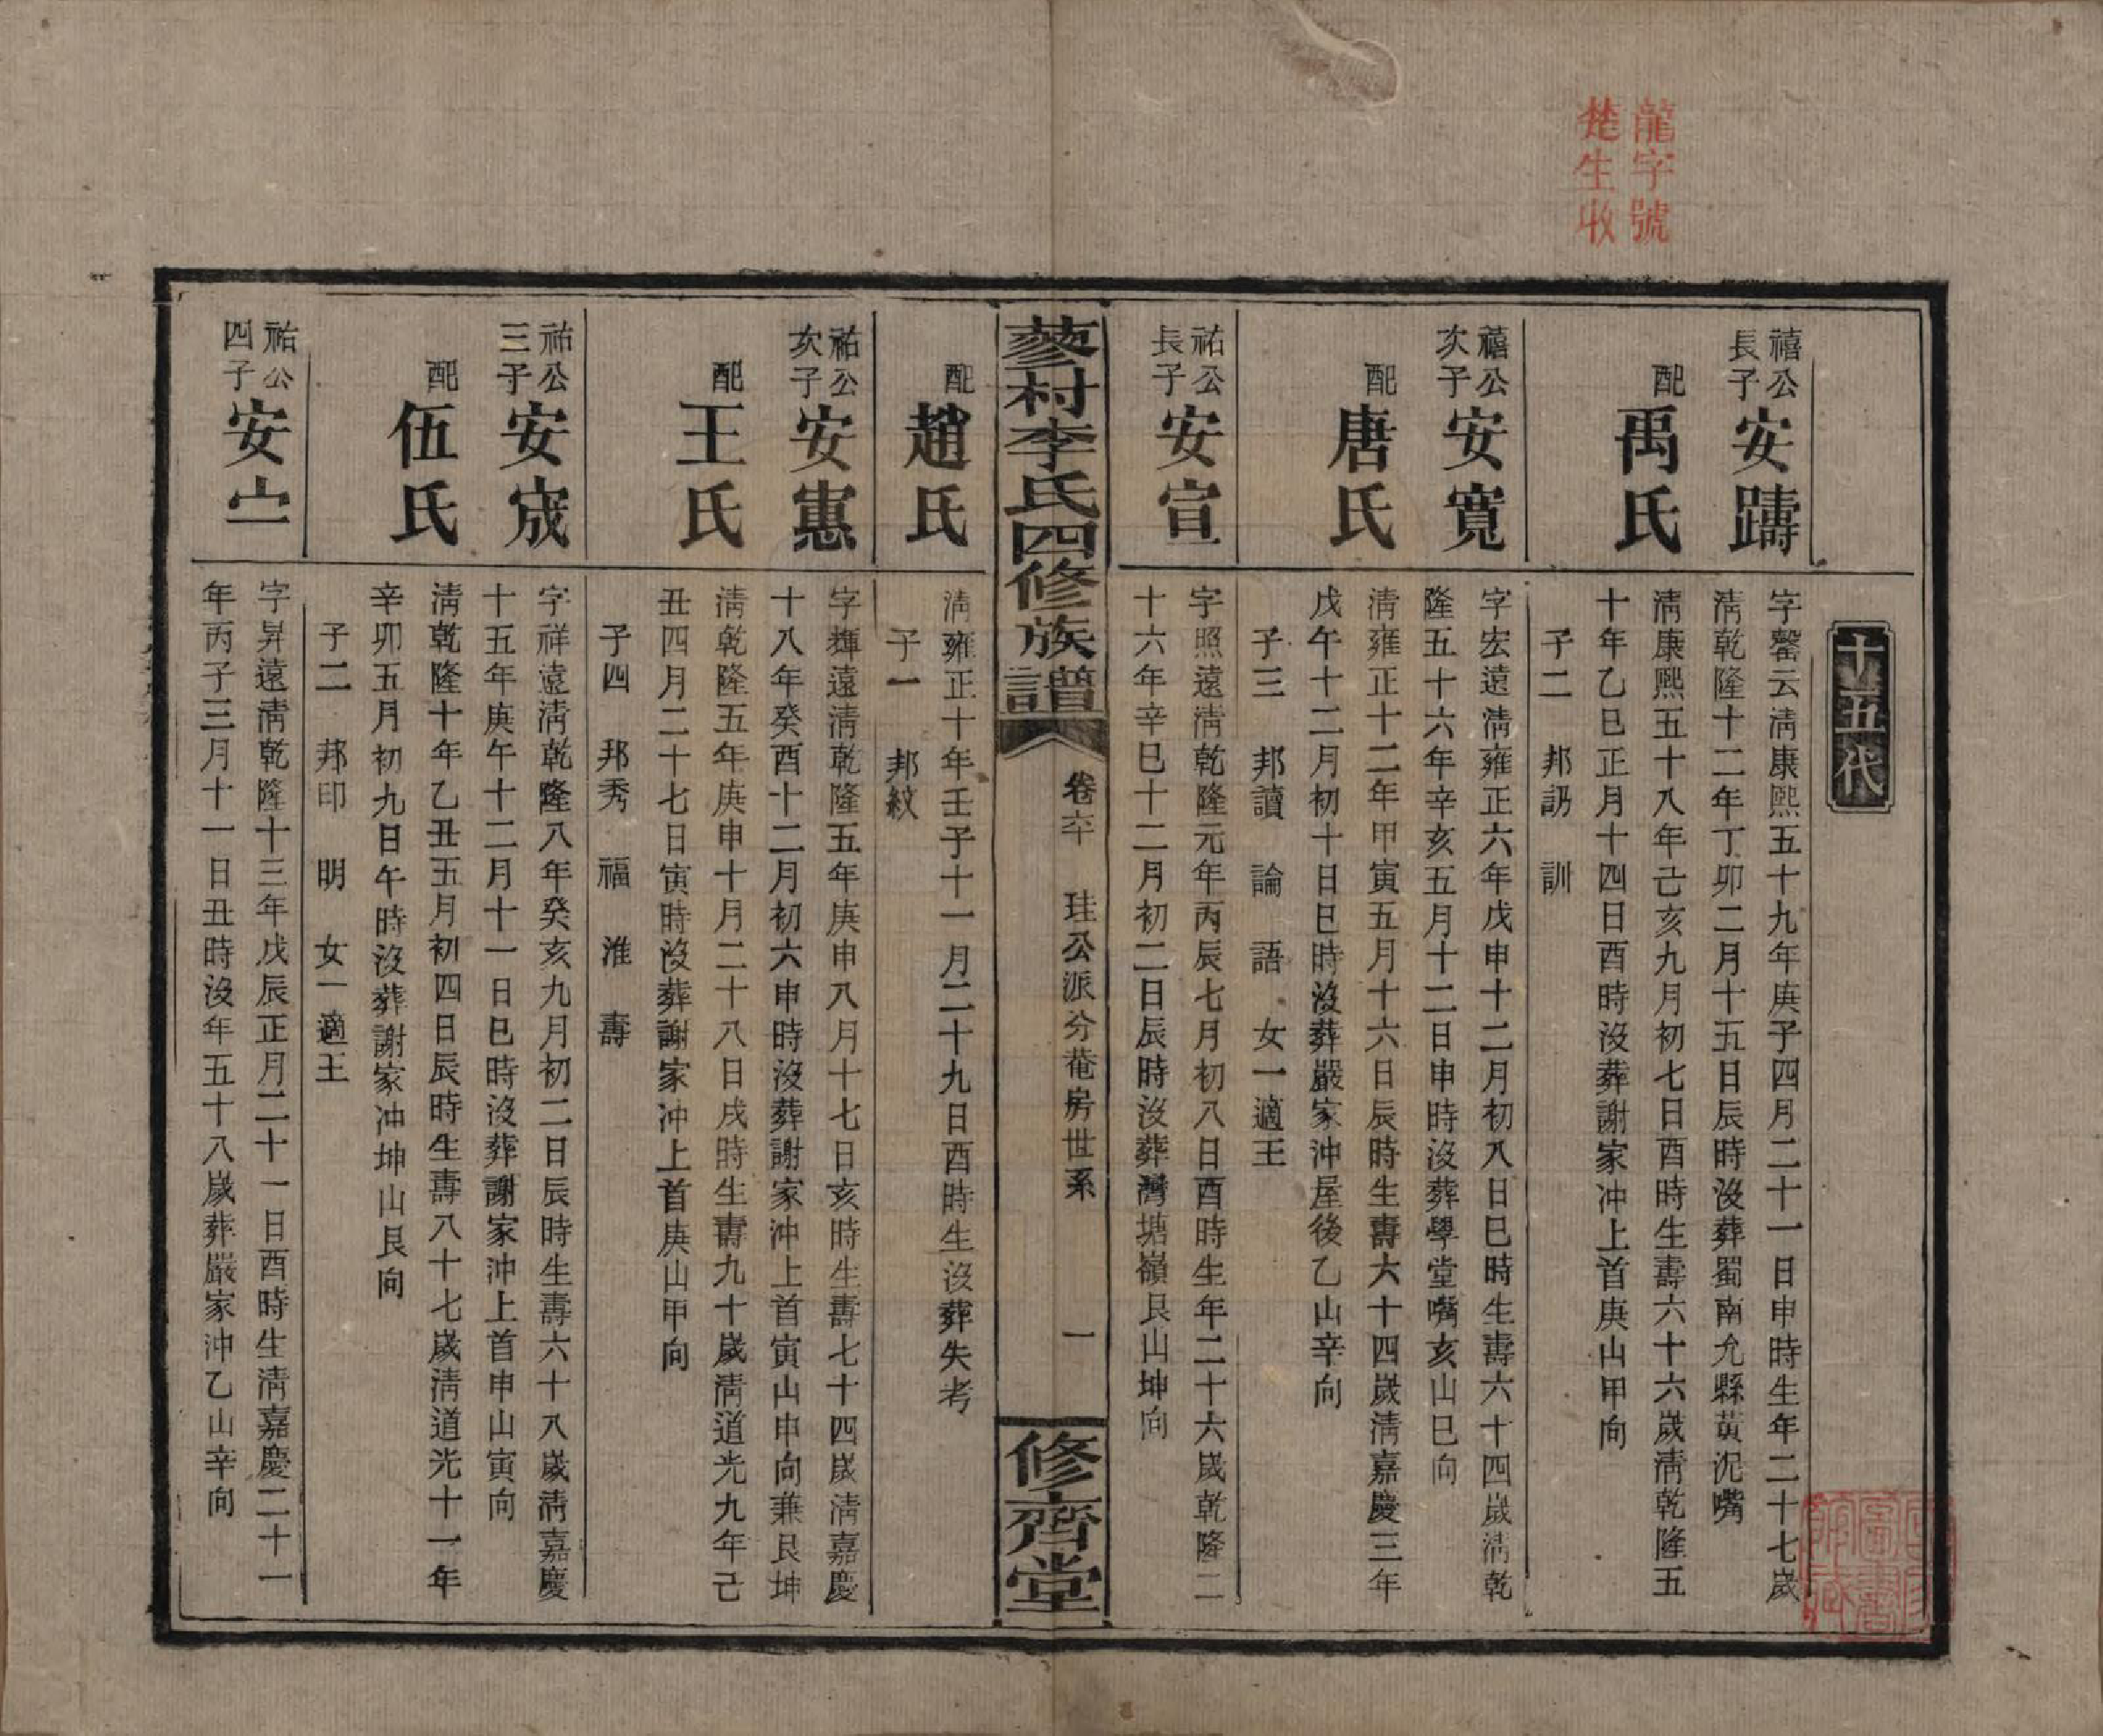 龍字號
楚生收
十五代
禧公
長子
安躊
字罄云淸康熙五十九年庚子四月二十一日申時生年二十七歲
淸乾隆十二年丁卯二月十五日辰時沒葬蜀南允縣黄泥嘴
配
禹氏
淸康熙五十八年己亥九月初七日酉時生壽六十六歲淸乾隆五
十年乙巳正月十四日酉時沒葬謝家冲上首庚山甲向
子二 邦訒 訓
禧公
次子
安寬
字宏遠淸雍正六年戊申十二月初八日巳時生壽六十四歲淸乾
隆五十六年辛亥五月十二日申時沒葬學堂嘴亥山巳向
配
唐氏
淸雍正十二年甲寅五月十六日辰時生壽六十四歲淸嘉慶三年
戊午十二月初十日巳時沒葬嚴家冲屋後乙山辛向
子三 邦讀 論 語 女一適王
祐公
長子
安宣
字照遠淸乾隆元年丙辰七月初八日酉時生年二十六歲乾隆二
十六年辛巳十二月初二日辰時沒葬灣塘嶺艮山坤向
蓼村李氏四修族譜
卷六 珪公派分菴房世系
一
修齊堂
配
趙氏
淸雍正十年壬子十一月二十九日酉時生沒葬失考
子一 邦紋
祐公
次子
安惠
字輝遠淸乾隆五年庚申八月十七日亥時生壽七十四歲淸嘉慶
十八年癸酉十二月初六申時沒葬謝家冲上首寅山申向兼艮坤
配
王氏
淸乾隆五年庚申十月二十八日戌時生壽九十歲淸道光九年己
丑四月二十七日寅時沒葬謝家冲上首庚山甲向
子四 邦秀 福 淮 壽
祐公
三子
安宬
字祥遠淸乾隆八年癸亥九月初二日辰時生壽六十八歲淸嘉慶
十五年庚午十二月十一日巳時沒葬謝家冲上首申山寅向
配
伍氏
淸乾隆十年乙丑五月初四日辰時生壽八十七歲淸道光十一年
辛卯五月初九日午時沒葬謝家冲坤山艮向
子二 邦印 明 女一適王
祐公
四子
安宀
字昇遠淸乾隆十三年戊辰正月二十一日酉時生淸嘉慶二十一
年丙子三月十一日丑時沒年五十八歲葬嚴家冲乙山辛向